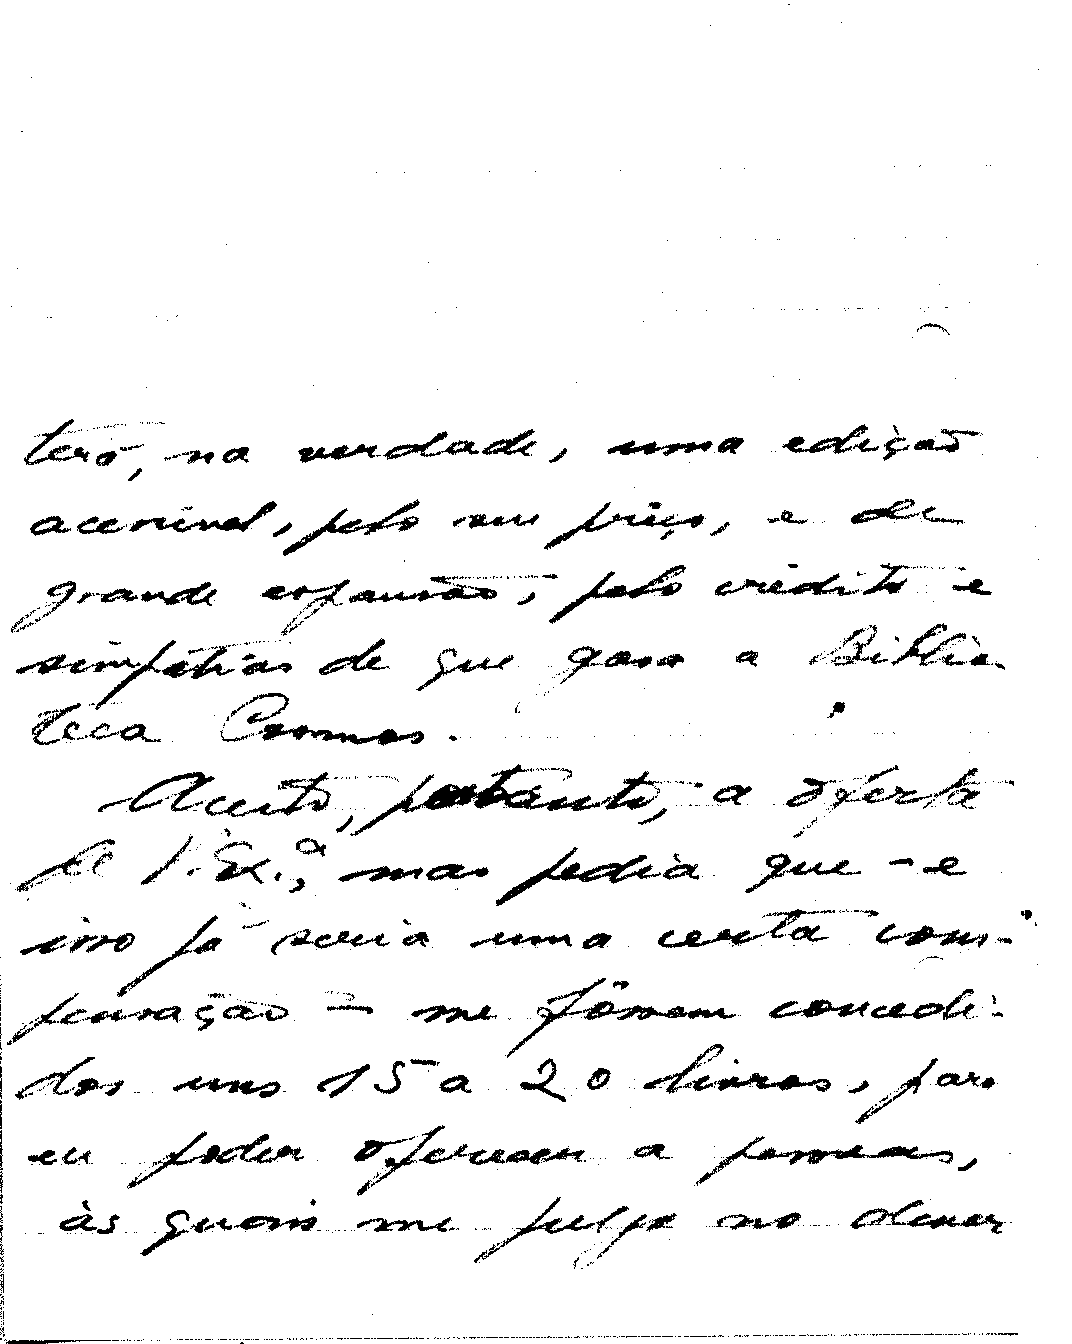 terá, na verdade, uma edição
acessível, pelo seu preço, e de
grande expansão, pelo crédito e
simpatias de que gosa a Biblio-
teca Cosmos.
Aceito, portanto, a oferta
de V. Ex.ª, mas pedia que - e
isso já seria uma certa com-
pensação - me fôssem concedi-
dos uns 15 a 20 livros, para
eu poder oferecer a pessoas,
às quais me julgo no dever